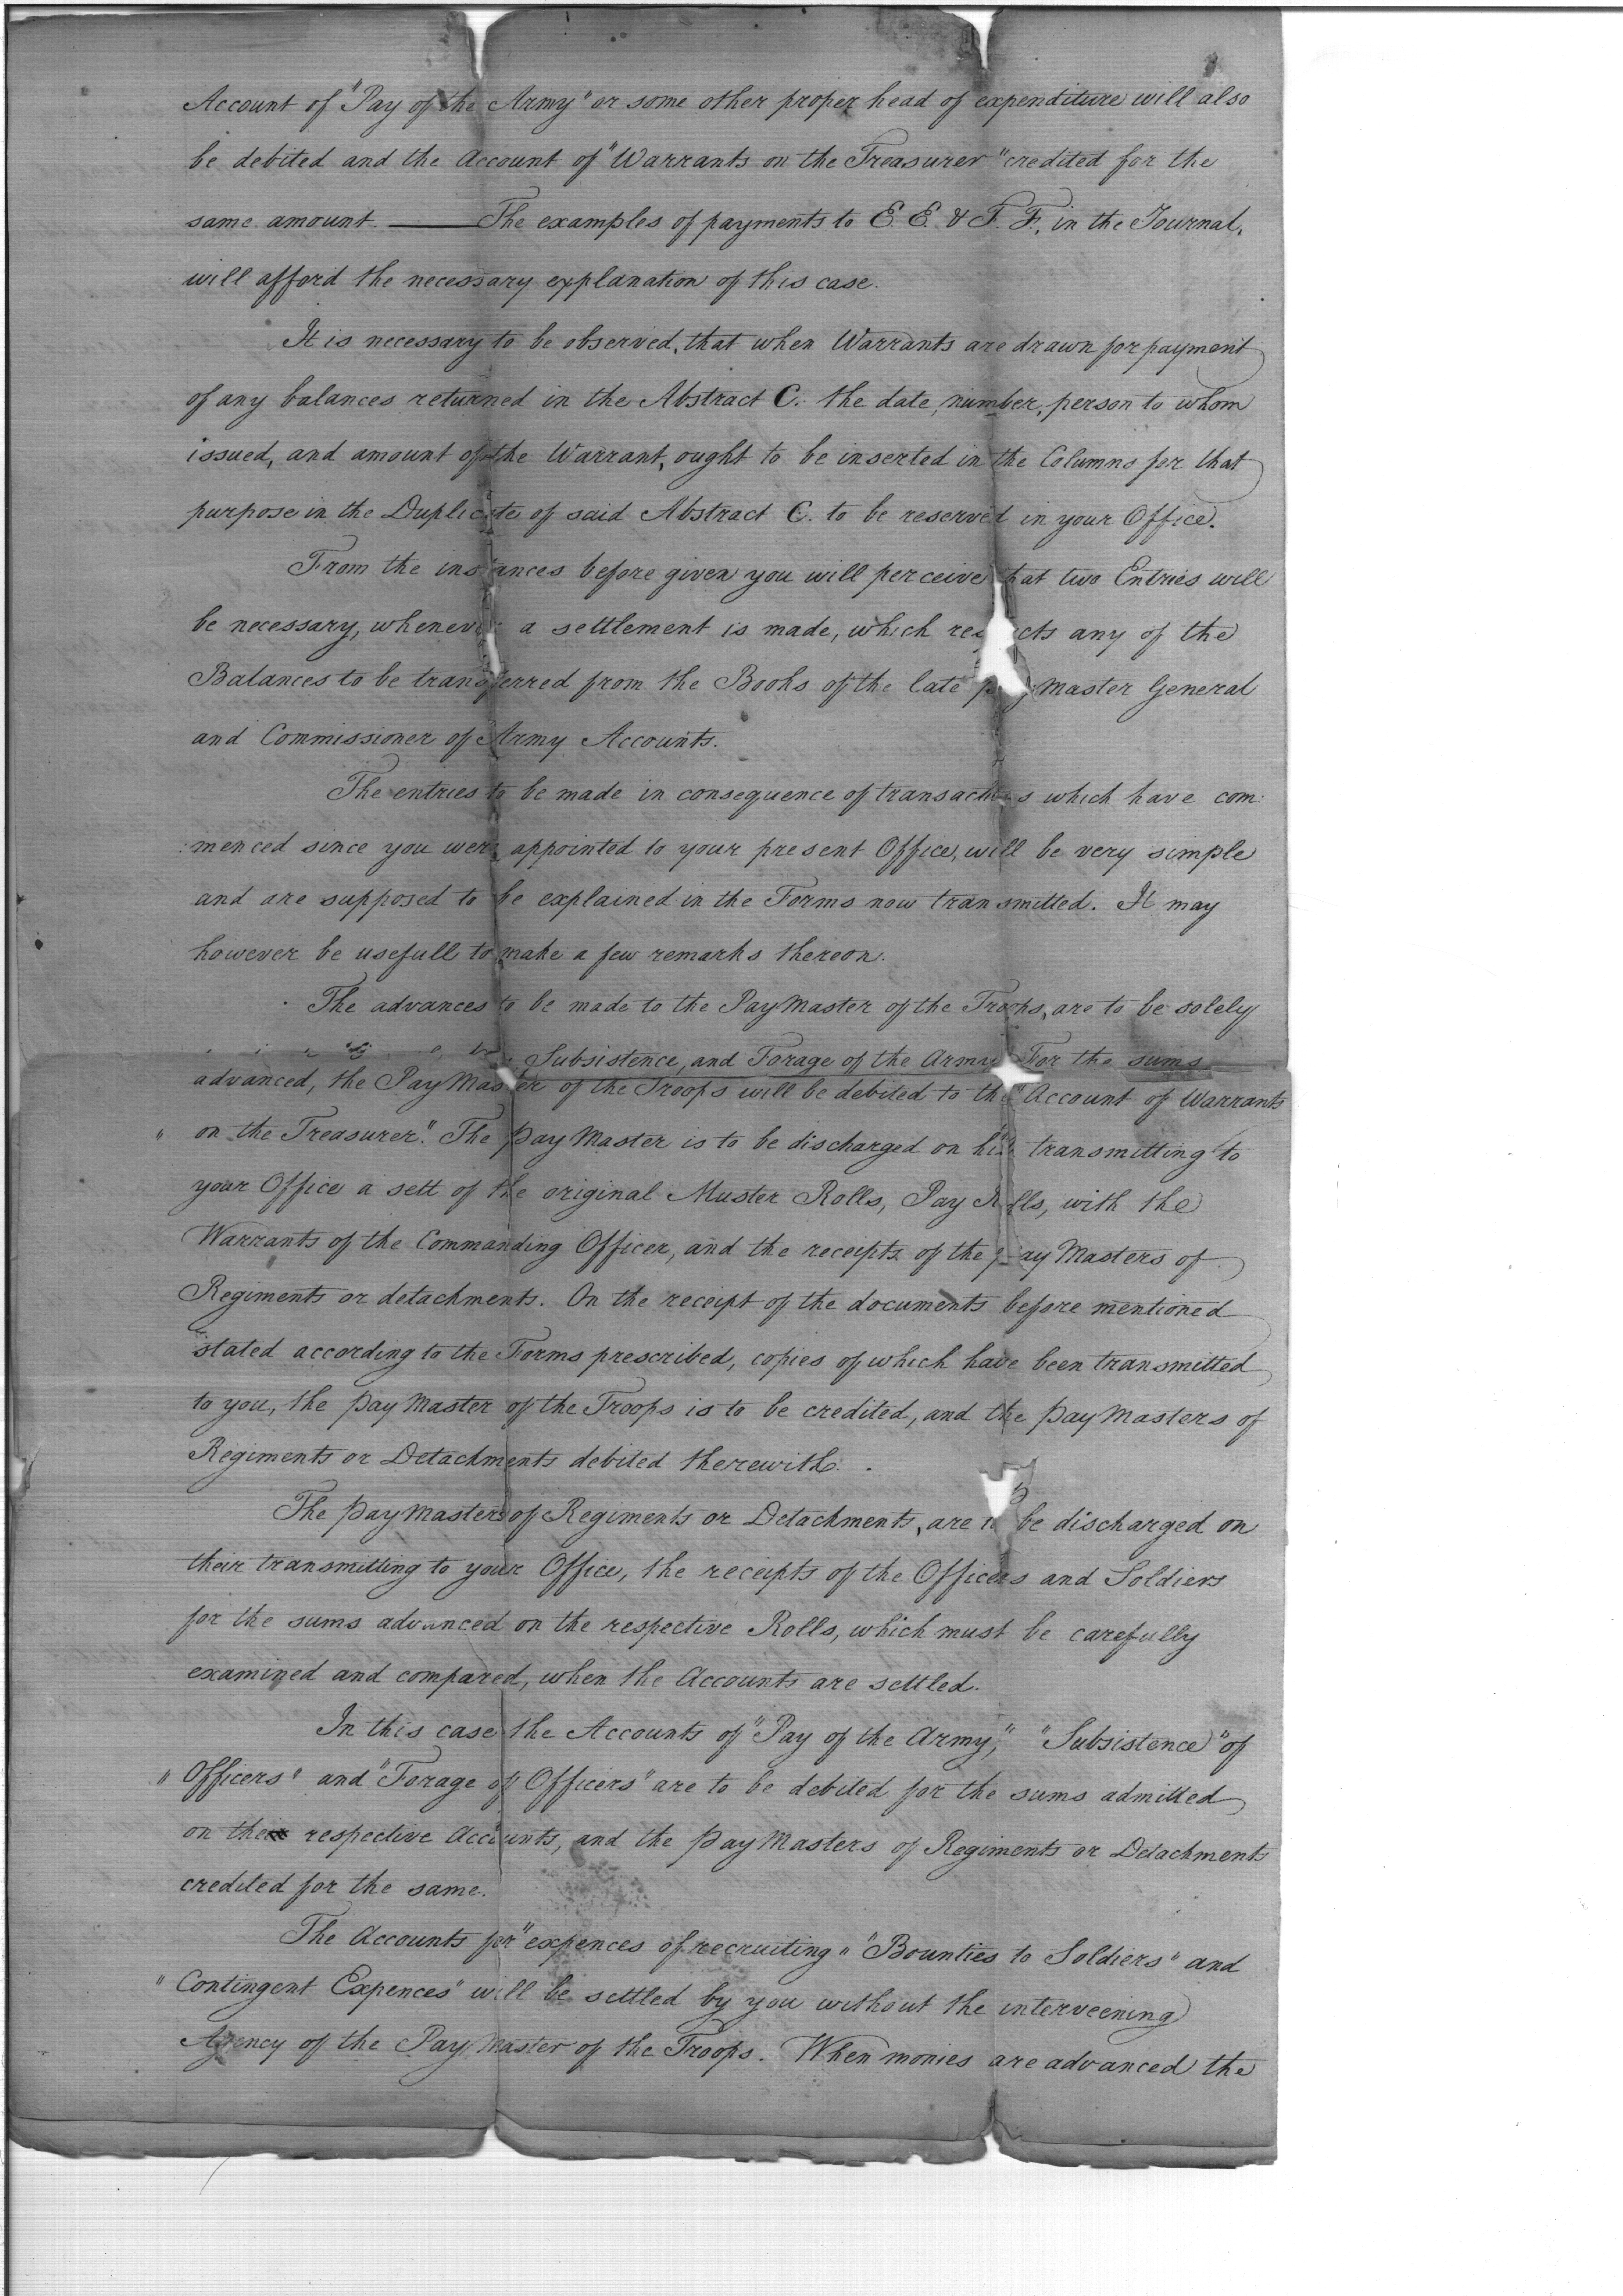 Account of "Pay of the Army" or some other proper head of expenditure will also
be debited and the Account of "Warrants on the Treasurer" credited for the
same amount. — The examples of payments to E. E. & F. F. in the Journal,
will afford the necessary explanation of this case.
It is necessary to be observed, that when Warrants are drawn for payment
of any balances returned in the Abstract C. the date, number, person to whom
issued, and amount of the Warrant, ought to be inserted in the Columns for that
purpose in the Duplicate of said Abstract C. to be reserved in your Office.
From the instances before given you will perceive that two Entries will
be necessary, whenever a settlement is made, which respects any of the
Balances to be transferred from the Books of the late pay Master General
and Commissioner of Army Accounts.
The entries to be made in consequence of transactions which have com:
:menced since you were appointed to your present Office, will be very simple
and are supposed to be explained in the Forms now transmitted. It may
however be usefull to make a few remarks thereon.
The advances to be made to the PayMaster of the Troops, are to be solely
Subsistence, and Forage of the Army For the sums
advanced, the PayMaster of the Troops will be debited to the "Account of Warrants
" on the Treasurer." The PayMaster is to be discharged on his transmitting to
your Office a sett of the original Muster Rolls, Pay Rolls, with the
Warrants of the Commanding Officer, and the receipts of the pay Masters of
Regiments or detachments. On the receipt of the documents before mentioned
stated according to the Forms prescribed, copies of which have been transmitted
to you, the Pay Master of the Troops is to be credited, and the PayMasters of
Regiments or Detachments debited therewith.
The PayMasters of Regiments or Detachments, are to be discharged on
their transmitting to your Office, the receipts of the Officers and Soldiers
for the sums advanced on the respective Rolls, which must be carefully
examined and compared, when the Accounts are settled.
In this case the Accounts of "Pay of the Army," "Subsistence" of
" Officers" and "Forage of Officers" are to be debited for the sums admitted
on the respective Accounts, and the PayMasters of Regiments or Detachments
credited for the same.
The Accounts for "expences of recruiting" "Bounties to Soldiers" and
" Contingent Expences" will be settled by you without the interveening
Agency of the Pay Master of the Troops. When monies are advanced the